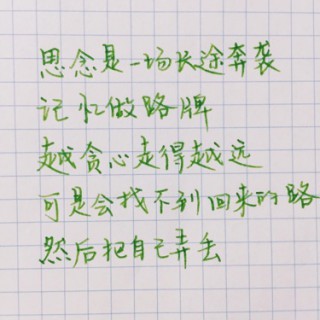 思念是一场长途奔袭
记忆做路牌
越贪心走得越远
可是会找不到回来的路
然后把自己弄丢